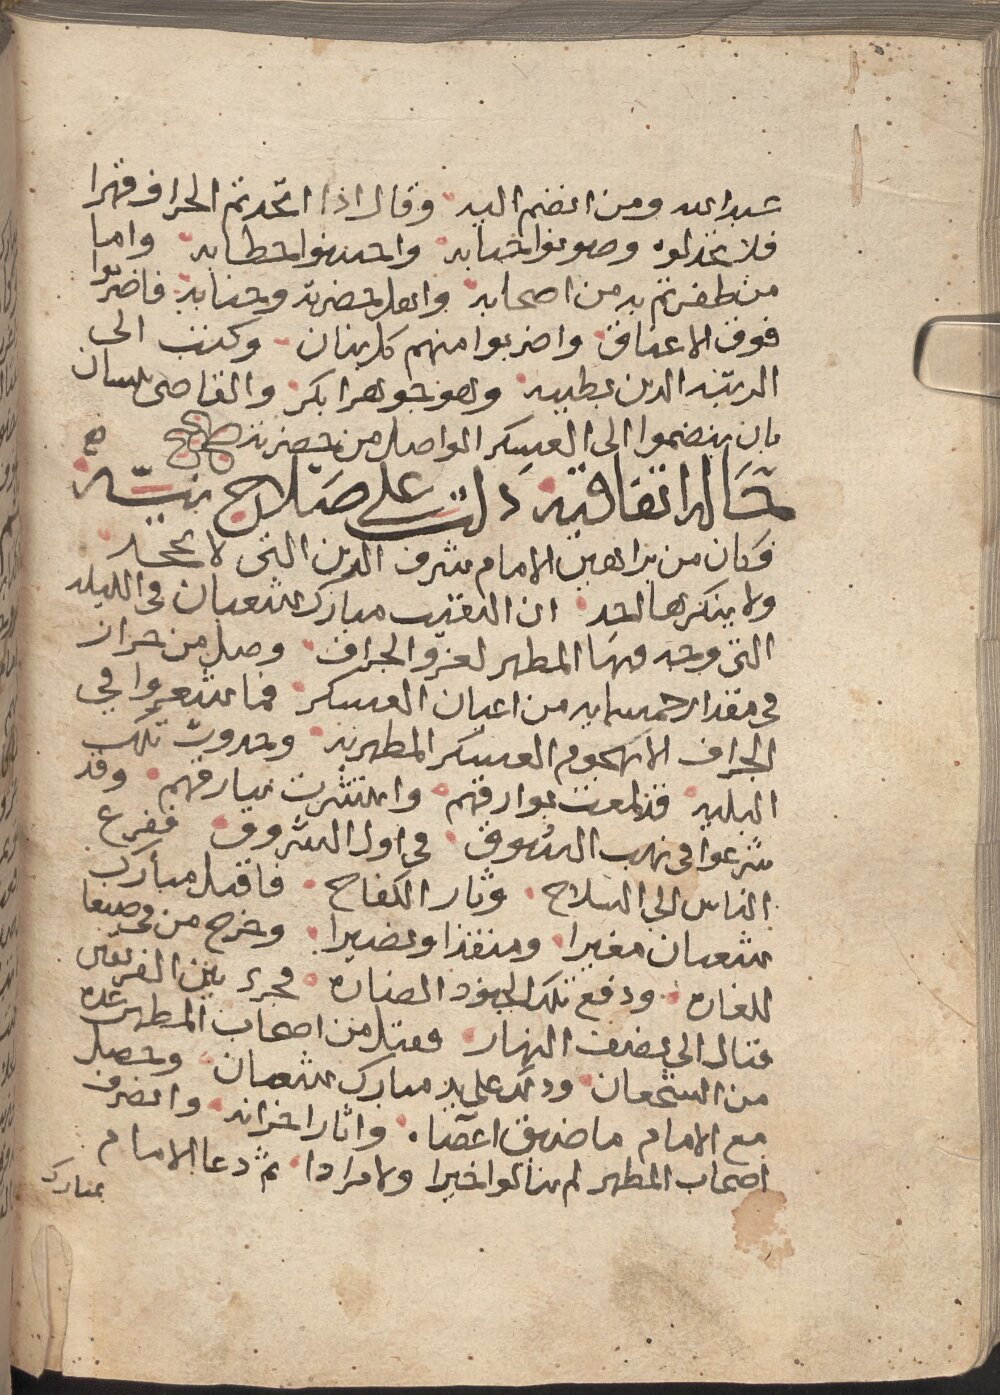 عبدالله ومن انضم اليه وقال اذا اتخذتم الجراف قهرا
فلا تخذلوه وصونوا لجنابه واحسنوا لخطابه واما
من ظفرتم به من اصحابه واهل حضرته وجنابه فاضربوا
فوق الاعناق واضربوا منهم كل بنان وكتب الى
الرتبه الذين بطيبه وهو جوهر ابكر والقاضي بلسان
بان ينضموا الى العسكر الواصل من حضرته
حالة اتفاقية دلت على صلاح نية
فكان من براهين الامام شرف الدين التي لا تجحد
ولا ينكرها احد ان النقيب مبارك شعبان في الليله
التي وجه فيها المطهر لغزو الجراف وصل من حراز
في مقدار خمسمايه من اعيان العسكر فما شعروا في
الجراف الا بهجوم العسكر المطهريه وحدوث تلك
البليه قد لمعت بوارقهم وانتشرت بيارقهم وقد
شرعوا في نهب السوق في اول الشروق ففزع
الناس الى السلاح وثار الكفاح فاقبل مبارك
شعبان مغيرا ومنقذا ونصيرا وخرج من في صنعا
للغاره ودفع تلك الجنود الضاره فجرى بين الفريقين
قتال الى نصف النهار فقتل من اصحاب المطهر عده
من الشجعان وذلك على يد مبارك شعبان وحصل
مع الامام ما ضيق اعضاه واثار احزانه وانصرف
اصحاب المطهر لم ينالوا خيرا ولا مرادا ثم دعا الامام
بمبارك